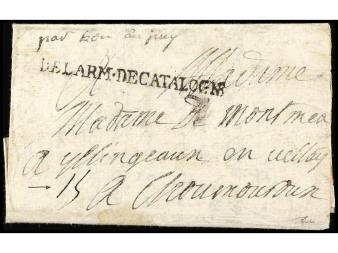 par
DELARM·DECATALOGNE
A Madame
Madame de Montmea
a yssingeaux en vellay
15 a Choumouroux